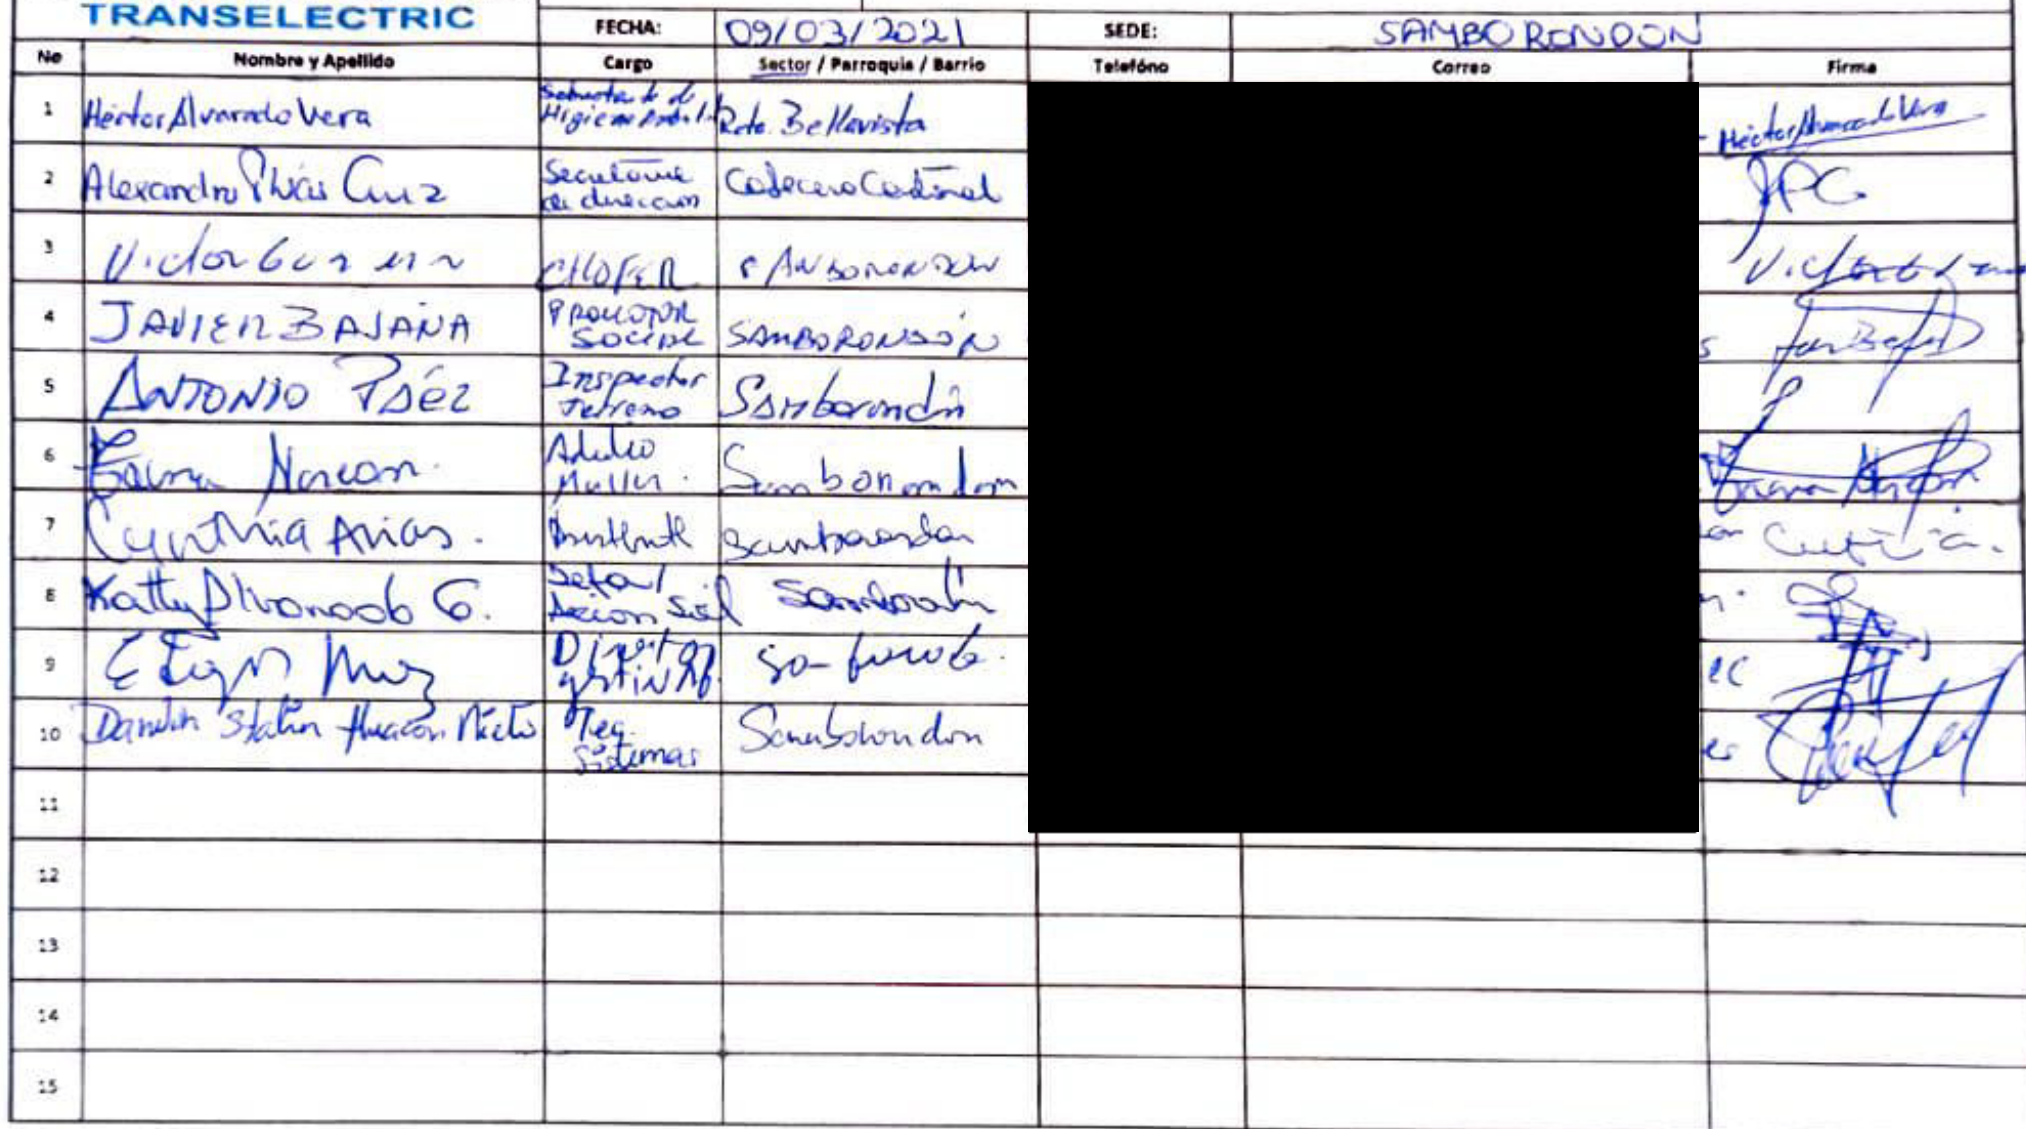 TRANSELECTRIC
FECHA: 09/03/2021 SEDE: SAMBORONDON
No Nombre y Apellido Cargo Sector / Parroquia / Barrio Telefóno Correo Firma
1 Héctor Alvarado Vera Higiene Rcto. Bellavista Héctor Alvarado Vera
2 Alexandra Cruz Secretaria de dirección Cabecera Cantonal APC
3 Victor CHOFER SAMBORONDON
4 JAVIER BAJAÑA PROMOTOR SOCIAL SAMBORONDÓN
5 ANTONIO PÁEZ Inspector terreno Samborondón
6 Adulto Mayor. Samborondon
7 Cynthia Arias. Asistente Samborondon Cynthia.
8 Katty Alvarado G. Jefa Accion Social Samborondón
9 Director Samborondon
10 Darwin Stalin Huacon Nieto Tec. Sistemas Samborondon
11
12
13
14
15